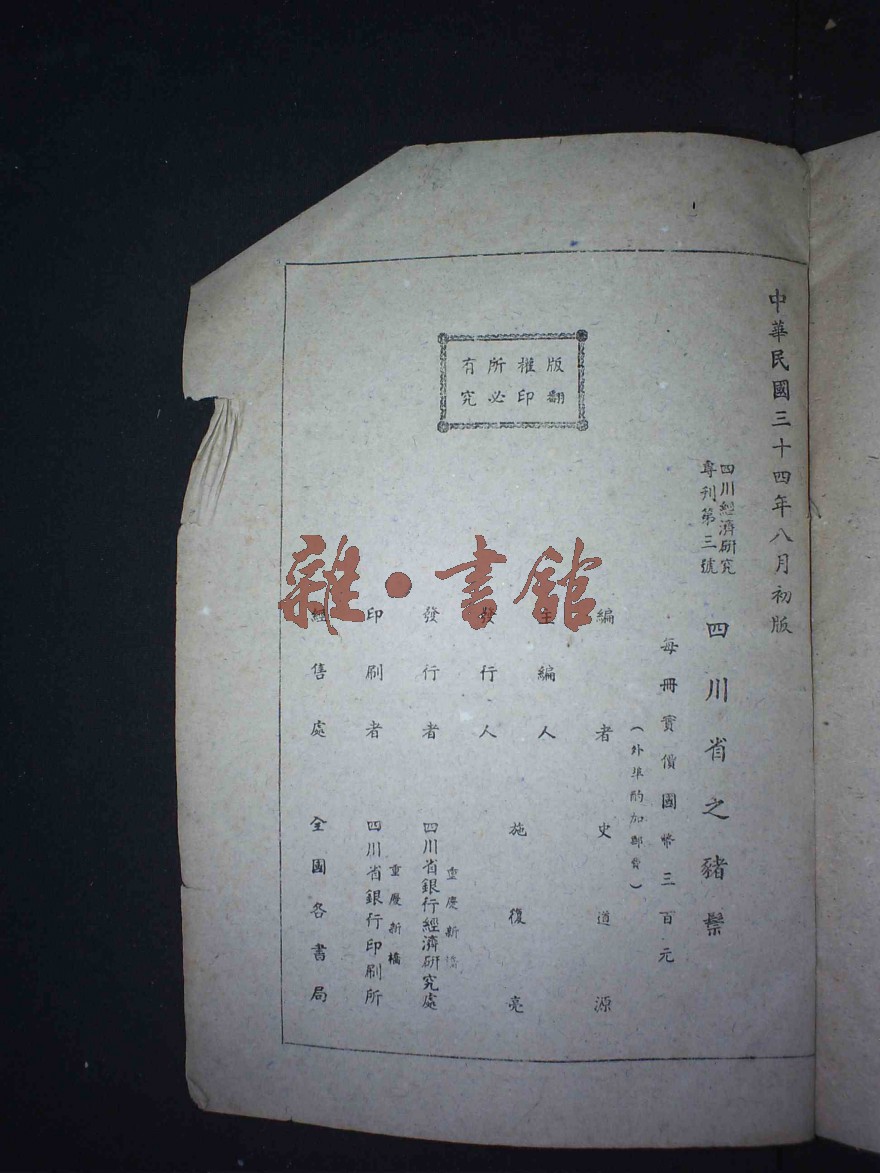 中華民國三十四年八月初版
四川經濟研究
專刊第三號
四川省之豬鬃
每冊實價國幣三百元
（外埠酌加郵費）
編者 史道源
主編人
發行人 施復亮
重慶新橋
發行者 四川省銀行經濟研究處
重慶新橋
印刷者 四川省銀行印刷所
經售處 全國各書局
版權所有
翻印必究
雜·書館